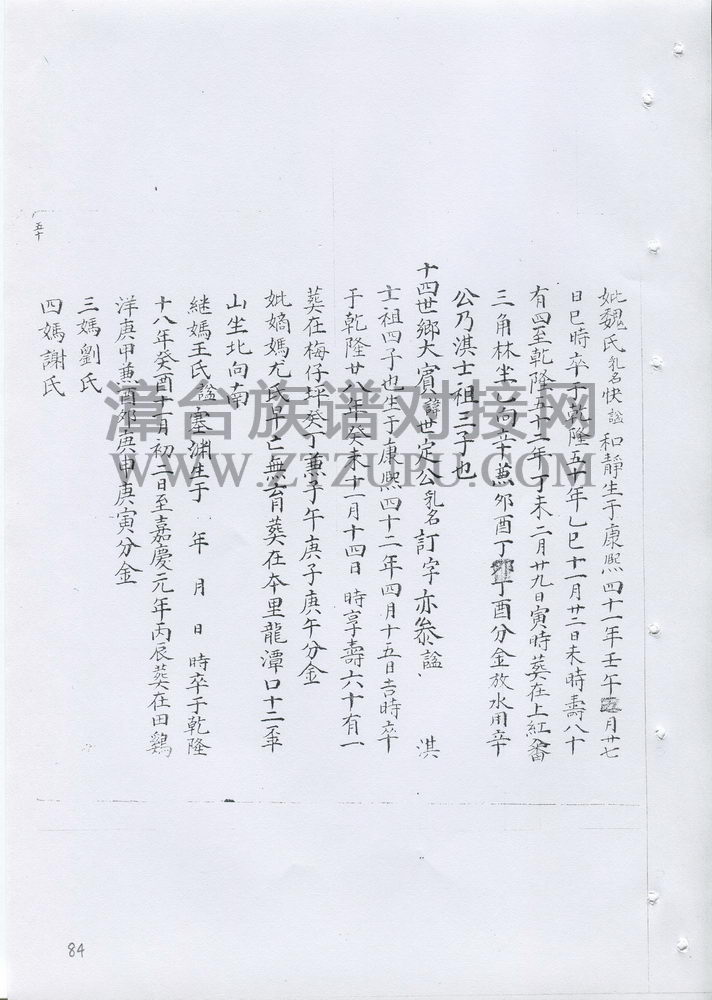 妣魏氏乳名快諡和靜生于康熙四十一年壬午月廿七
日巳時卒于乾隆五十年乙巳十一月廿二日未時壽八十
有四至乾隆五十二年丁未二月廿九日寅時葬在上紅畬
三角林坐向辛兼卯酉丁卯丁酉分金放水用辛
公乃淇士祖三子也
十四世鄉大賓諱世定公乳名訂字亦參諡 淇
士祖四子也生于康熙四十二年四月十五日吉時卒
于乾隆廿八年癸未十一月十四日 時享壽六十有一
葬在梅仔坪癸丁兼子午庚子庚午分金
妣嫡媽尤氏早亡無育葬在本里龍潭口十二坵
山坐北向南
継媽王氏諡塞淵生于 年 月 日 時卒于乾隆
十八年癸酉十一月初二日至嘉慶元年丙辰葬在田鷄
洋庚甲兼酉卯庚申庚寅分金
三媽劉氏
四媽謝氏
五十
84
漳台族谱对接网
WWW.ZTZUPU.COM